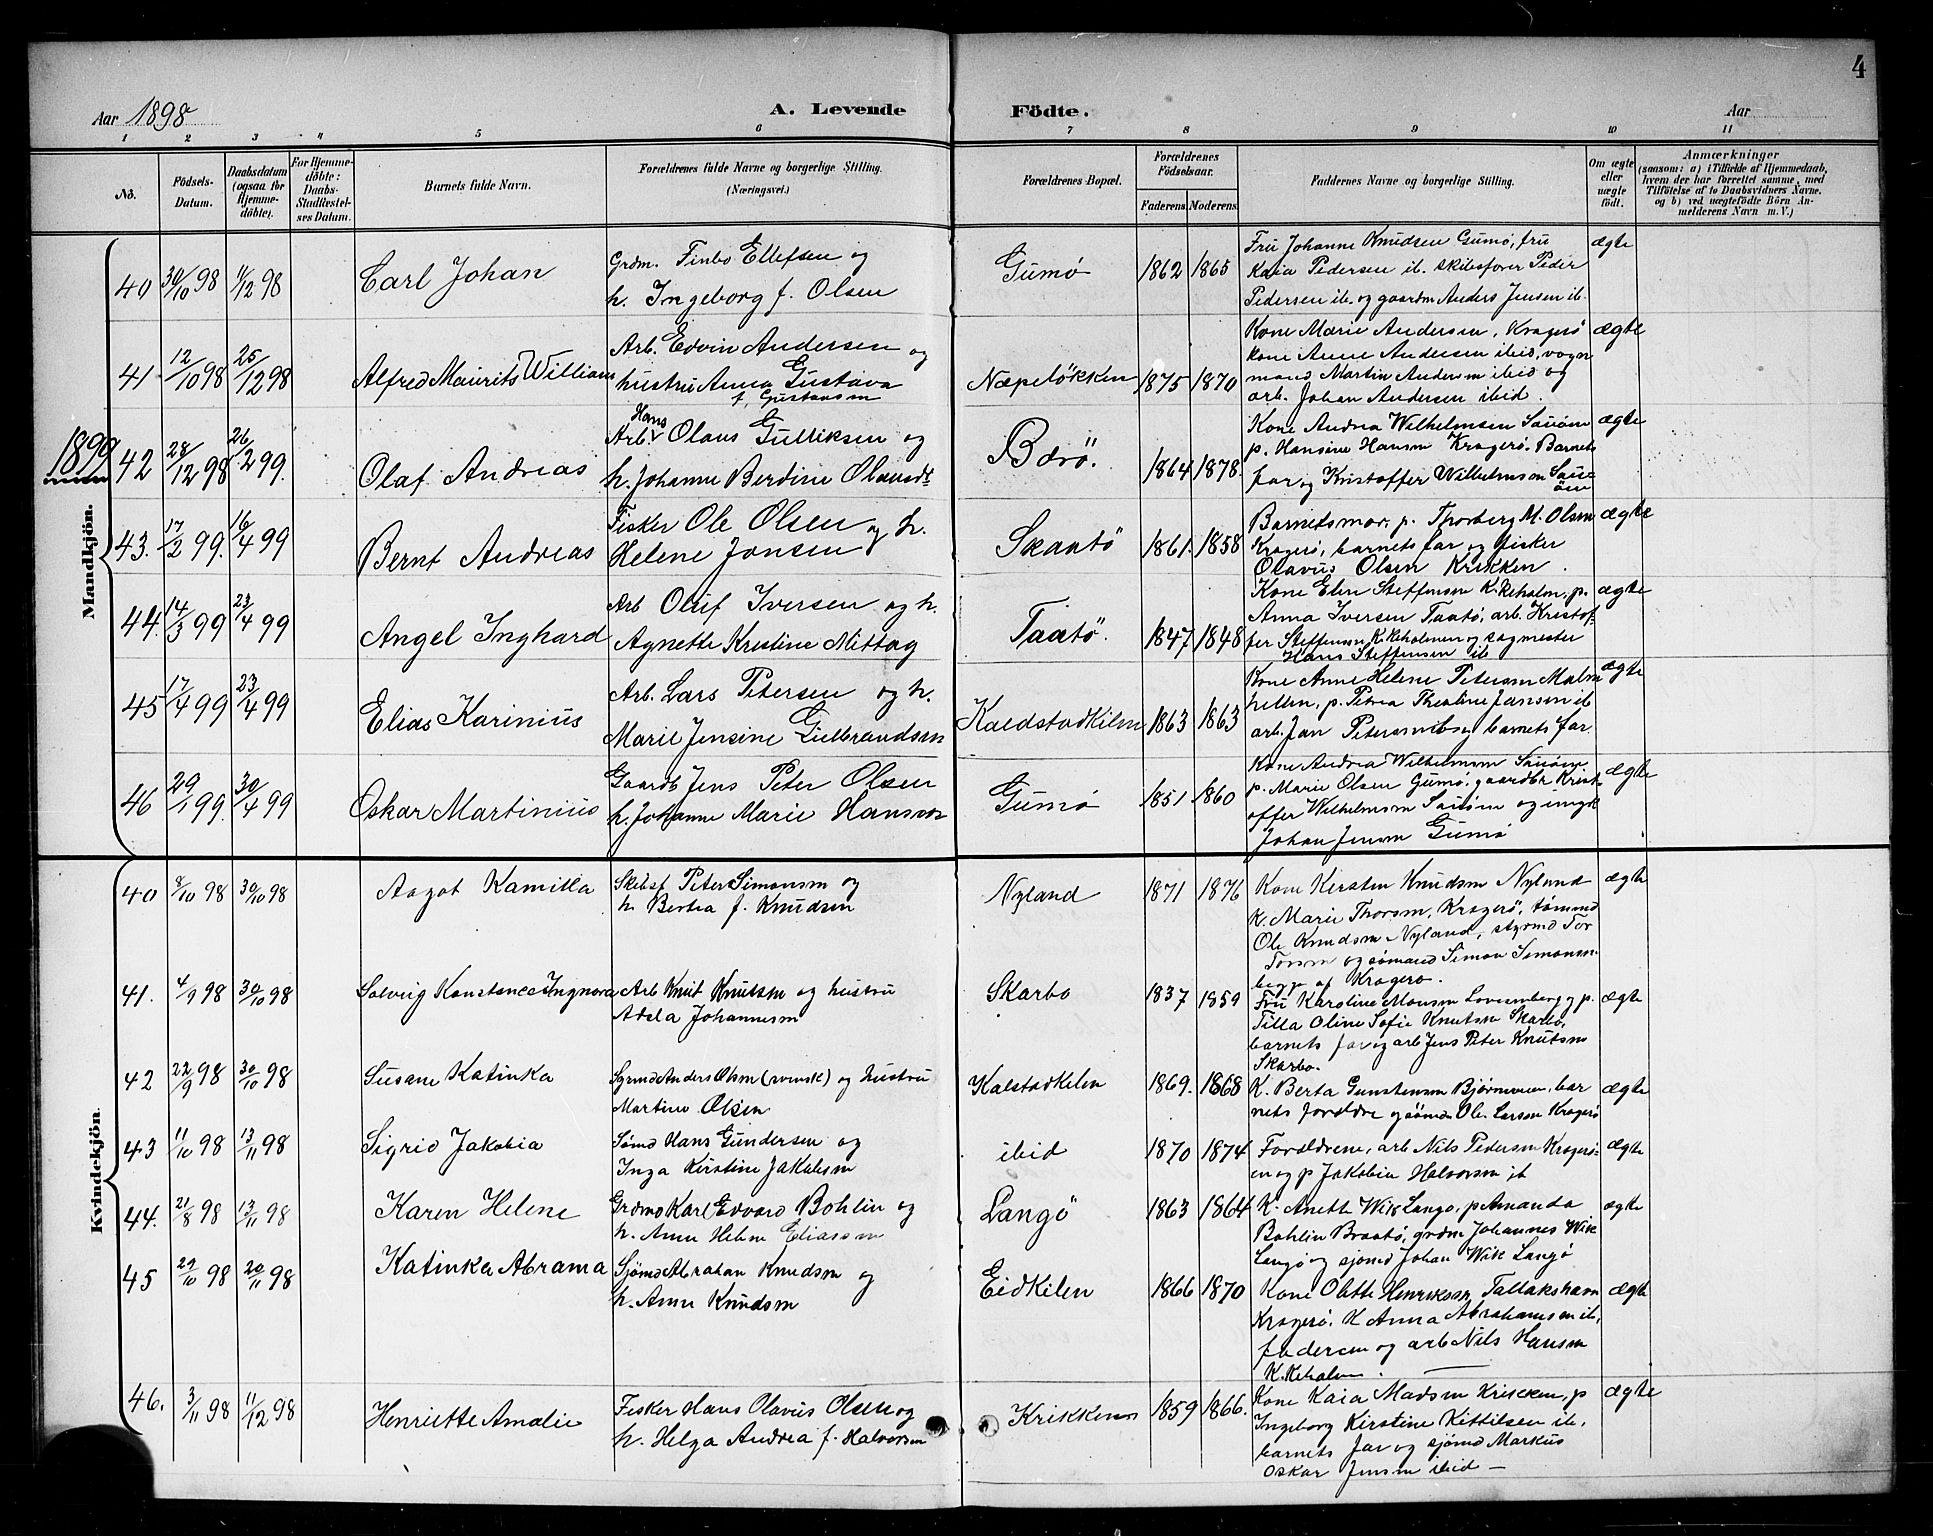 4
Aar 1898
A. Levende Födte.
Aar
1 2 3 4 5 6 7 8 9 10 11
No.
Födsels-Datum.
Daabsdatum (ogsaa for Hjemme-döbte).
For Hjemme-döbte: Daabs-Stadfæstel-ses Datum.
Barnets fulde Navn.
Forældrenes fulde Navne og borgerlige Stilling. (Næringsvei.)
Forældrenes Bopæl.
Forældrenes Födselsaar.
Faderens. Moderens.
Faddernes Navne og borgerlige Stilling.
Om ægte eller uægte födt.
Anmærkninger
(saasom: a) i Tilfælde af Hjemmedaab, hvem der har forrettet samme, med Tilföielse af to Daabsvidners Navne, og b) ved uægtefödte Börn An-melderens Navn m. V.)
Mandkjön.
40 30/10 98 11/12 98 Carl Johan
Grdm. Finbo Ellefsen og
h. Ingeborg f. Olsen
Gumø 1862 1865
Fru Johanne Knudsen Gumø, fru
Kaia Pedersen ib. skibsfører Peder
Pedersen ib. og gaardm Anders Jensen ib.
ægte
41 12/10 98 25/12 98 Alfred Maurits William
Arb. Edvin Andersen og
hustru Anna Gustava
f. Gustavsen
Næpeløkken 1875 1870
Kone Marie Andersen, Kragerö
kone Anne Andersen ibid, vogn
mand Martin Andersen ibid og
arb. Johan Andersen ibid.
ægte
1899
42 28/12 98 26/2 99. Olaf Andreas
Arb. Hans Olaus Gulliksen og
h. Johanne Berdine Olausdt
Bærö. 1864 1878.
Kone Andrea Wilhelmsen Sauöen
p. Hansine Hansen Kragerö. Barnets
far og Kristoffer Wilhelmsen Sau-
öen
ægte
43. 17/2 99. 16/4 99 Bernt Andreas
Fisker Ole Olsen og h.
Helene Jonsen
Skaatö 1861. 1858
Barnets mor, p. Thorberg M. Olsen
Kragerö, barnets far og fisker
Olavus Olsen Krikken.
ægte
44. 14/3 99 23/4 99 Angel Inghard
Arb Oluf Iversen og h.
Agnette Kristine Mittag
Taatö. 1847 1848
Kone Elen Steffensen K.keholm, p.
Anna Iversen Taatö, arb. Kristof-
fer Steffensen K.kholmen og sagmester
Hans Steffensen ib
ægte
45 17/4 99 23/4 99 Elias Karinius
Arb. Lars Petersen og h.
Marie Jensine Gulbrandsen
Kalstadkilen 1863 1863
Kone Anne Helene Petersen Malm
hellen, p. Petrea Thealine Jansen ib
arb. Jan Petersen ib og barnets far
ægte
46 29/1 99. 30/4 99 Oskar Martinius
Gaardb Jens Peter Olsen
h. Johanne Marie Hansen
Gumø 1851 1860
Kone Andrea Wilhelmsen Sauöen
p. Marie Olsen Gumö, gaardbr Krist-
offer Wilhelmsen Sauöen og ungk
Johan Jensen Gumø
ægte
Kvindekjön.
40 8/10 98 30/10 98 Aagot Kamilla
Skibsf Peter Simonsen og
h. Bertea f. Knudsen
Nyland 1871 1876
Kone Kirsten Knudsen Nyland
K. Marie Thorsen, Kragerö, tømmd
Ole Knudsen Nyland, styrmd Tor
Torsen og sømand Simon Simonsen
begge af Kragerø.
ægte
41. 4/9 98 30/10 98 Solveig Konstance Ingnora
Arb Knut Knutsen og hustru
Adela Johannesen
Skarbo 1837 1859
Fru Karoline Monsen Lovisenberg og p.
Tilla Oline Sofie Knutsen Skarbo,
barnets far og arb Jens Peter Knutsen
Skarbo.
ægte
42 22/9 98 30/10 98 Susane Katinka
Syrmd Anders Olsen (svensk) og hustru
Martine Olsen
Kalstadkilen 1869. 1868
K. Berta Gunstensen Bjørneveien, bar
nets forældre og sömd Ole Larsen Kragerö
ægte
43 11/10 98 13/11 98 Sigrid Jakobia
Sømd Hans Gundersen og
Inga Kirstine Jakobsen
ibid 1870 1874
Forældrene, arb Nils Pedersen Kragerö-
en og p Jakobia Halvorsen ib
ægte
44. 21/8 98 13/11 98 Karen Helene
Grdmd Karl Edvard Bohlin og
h. Anne Helene Eliassen
Langö 1863 1864
K. Anette Wik Langø, p Amanda
Bohlin Braatö, grdm Johannes Wik
Langö og sjömd Johan Wik Langö
ægte
45 29/10 98 20/11 98 Katinka Abrama
Sjömd Abraham Knudsen og
h. Anne Knudsen
Eidkilen 1866 1870
Kone Olette Henriksen, Tallakshavn
Kragerö. K Anna Abrahamsen ib.
faderen og arb Nils Hansen
K.keholmen.
ægte
46. 3/11 98 11/12 98 Henriette Amalie
Fisker Hans Olavus Olsen og
h. Helga Andrea f. Halvorsen
Krikken 1859 1866.
Kone Kaia Madsen Krikken, p
Ingeborg Kirstine Kittilsen ib.
barnets far og sjømd Markus
Oskar Jensen ibid –
ægte